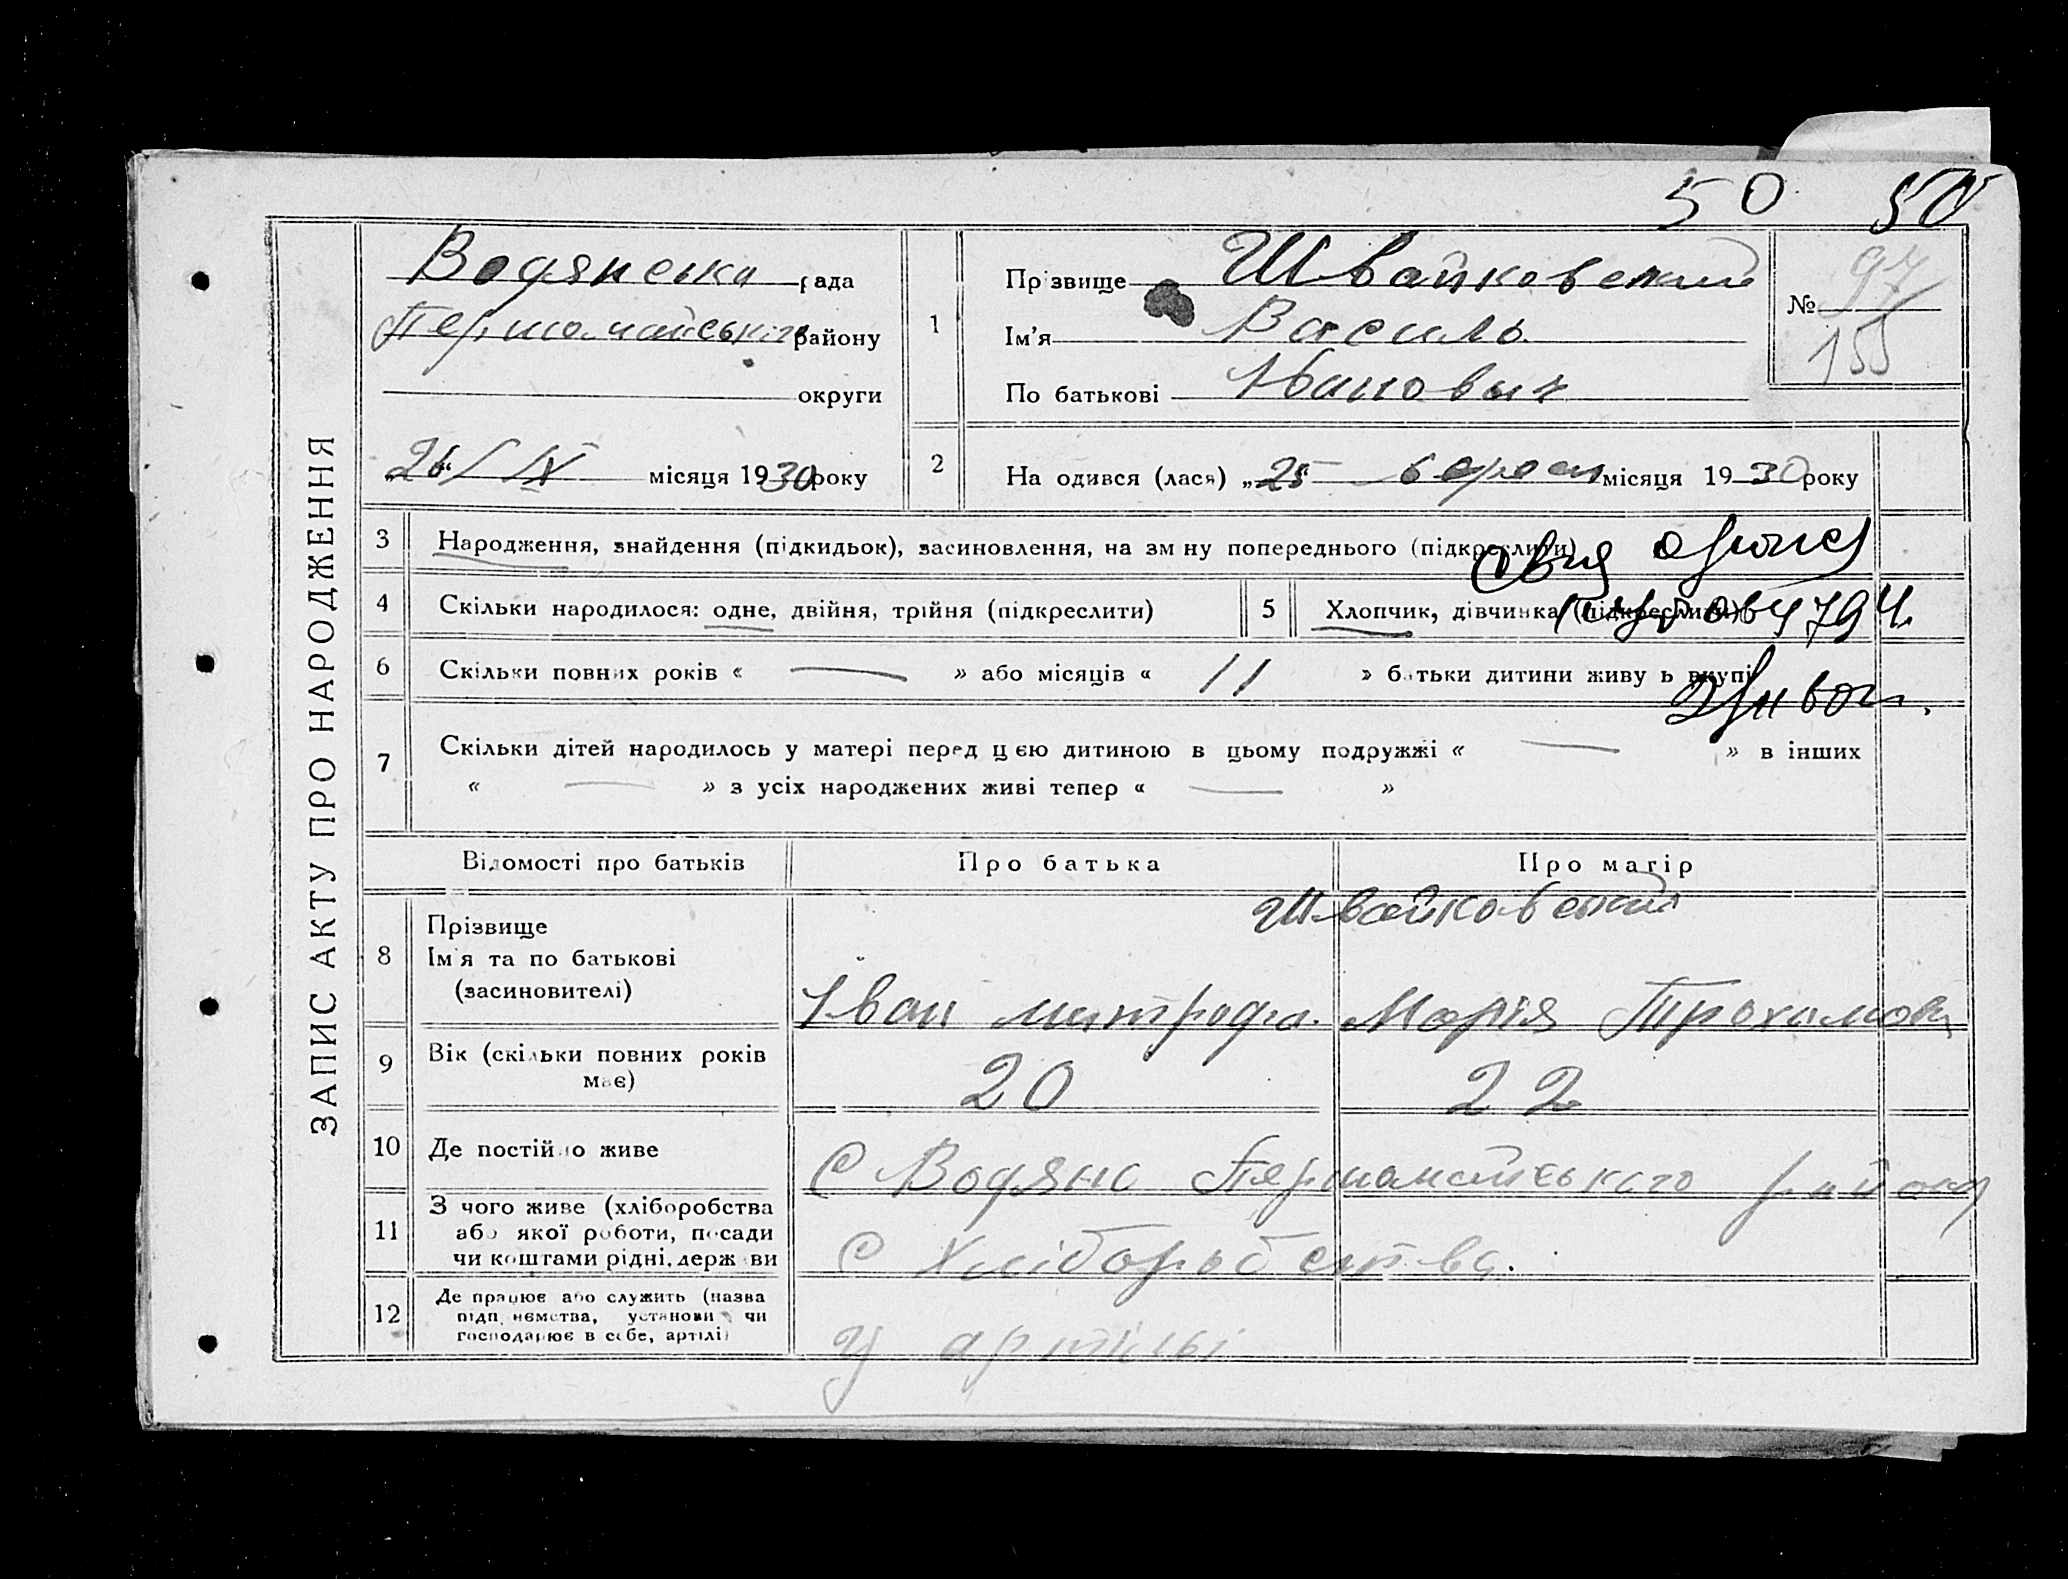 50 50
ЗАПИС АКТУ ПРО НАРОДЖЕННЯ
Водянська рада
Першомайського району
округи
„26“ / IX місяця 1930 року
1
Прізвище Швайковский
Ім’я Василь
По батькові Іванович
№ 97
155
2
На одився (лася) „25“ месяця 1930 року
3 Народження, знайдення (підкидьок), засиновлення, на зм ну попереднього (підкреслити)
4 Скільки народилося: одне, двійня, трійня (підкреслити)
5 Хлопчик, дівчинка (підкреслити)
794.
6 Скільки повних років « — » або місяців « 11 » батьки дитини живу ь вкупі
7 Скільки дітей народилось у матері перед цією дитиною в цьому подружжі « — » в інших
« — » з усіх народжених живі тепер « — »
Відомості про батьків Про батька Про матір
Швайковский
8 Прізвище
Ім’я та по батькові
(засиновителі)
Іван митрофа. Марія Трохимова
9 Вік (скільки повних років
має)
20 22
10 Де постійно живе
С Водяно Першомайського району
11 З чого живе (хліборобства
або якої роботи, посади
чи коштами рідні, держ ви
С Хліборобства.
12 Де працює або служить (назва
підп ємства, установи чи
господарює в себе, артілі)
У артільі